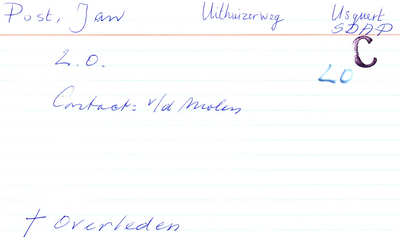 Post, Jan Uithuizerweg Usquert
SDAP
C
L.O. LO
Contact: v/d Molen
† Overleden